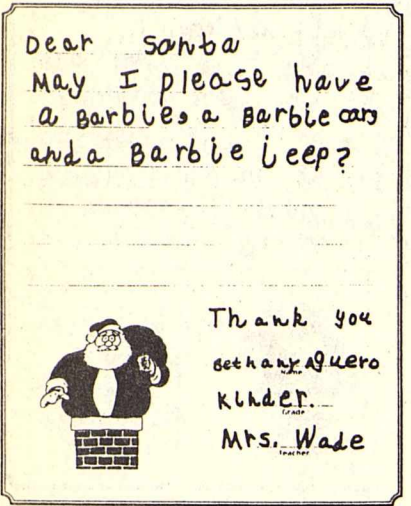 Dear Santa
May I please have
a Barbie, a Barbie cars
and a Barbie jeep?
Thank you
Bethany Aguero
Name
Kinder.
Grade
Mrs. Wade
Teacher